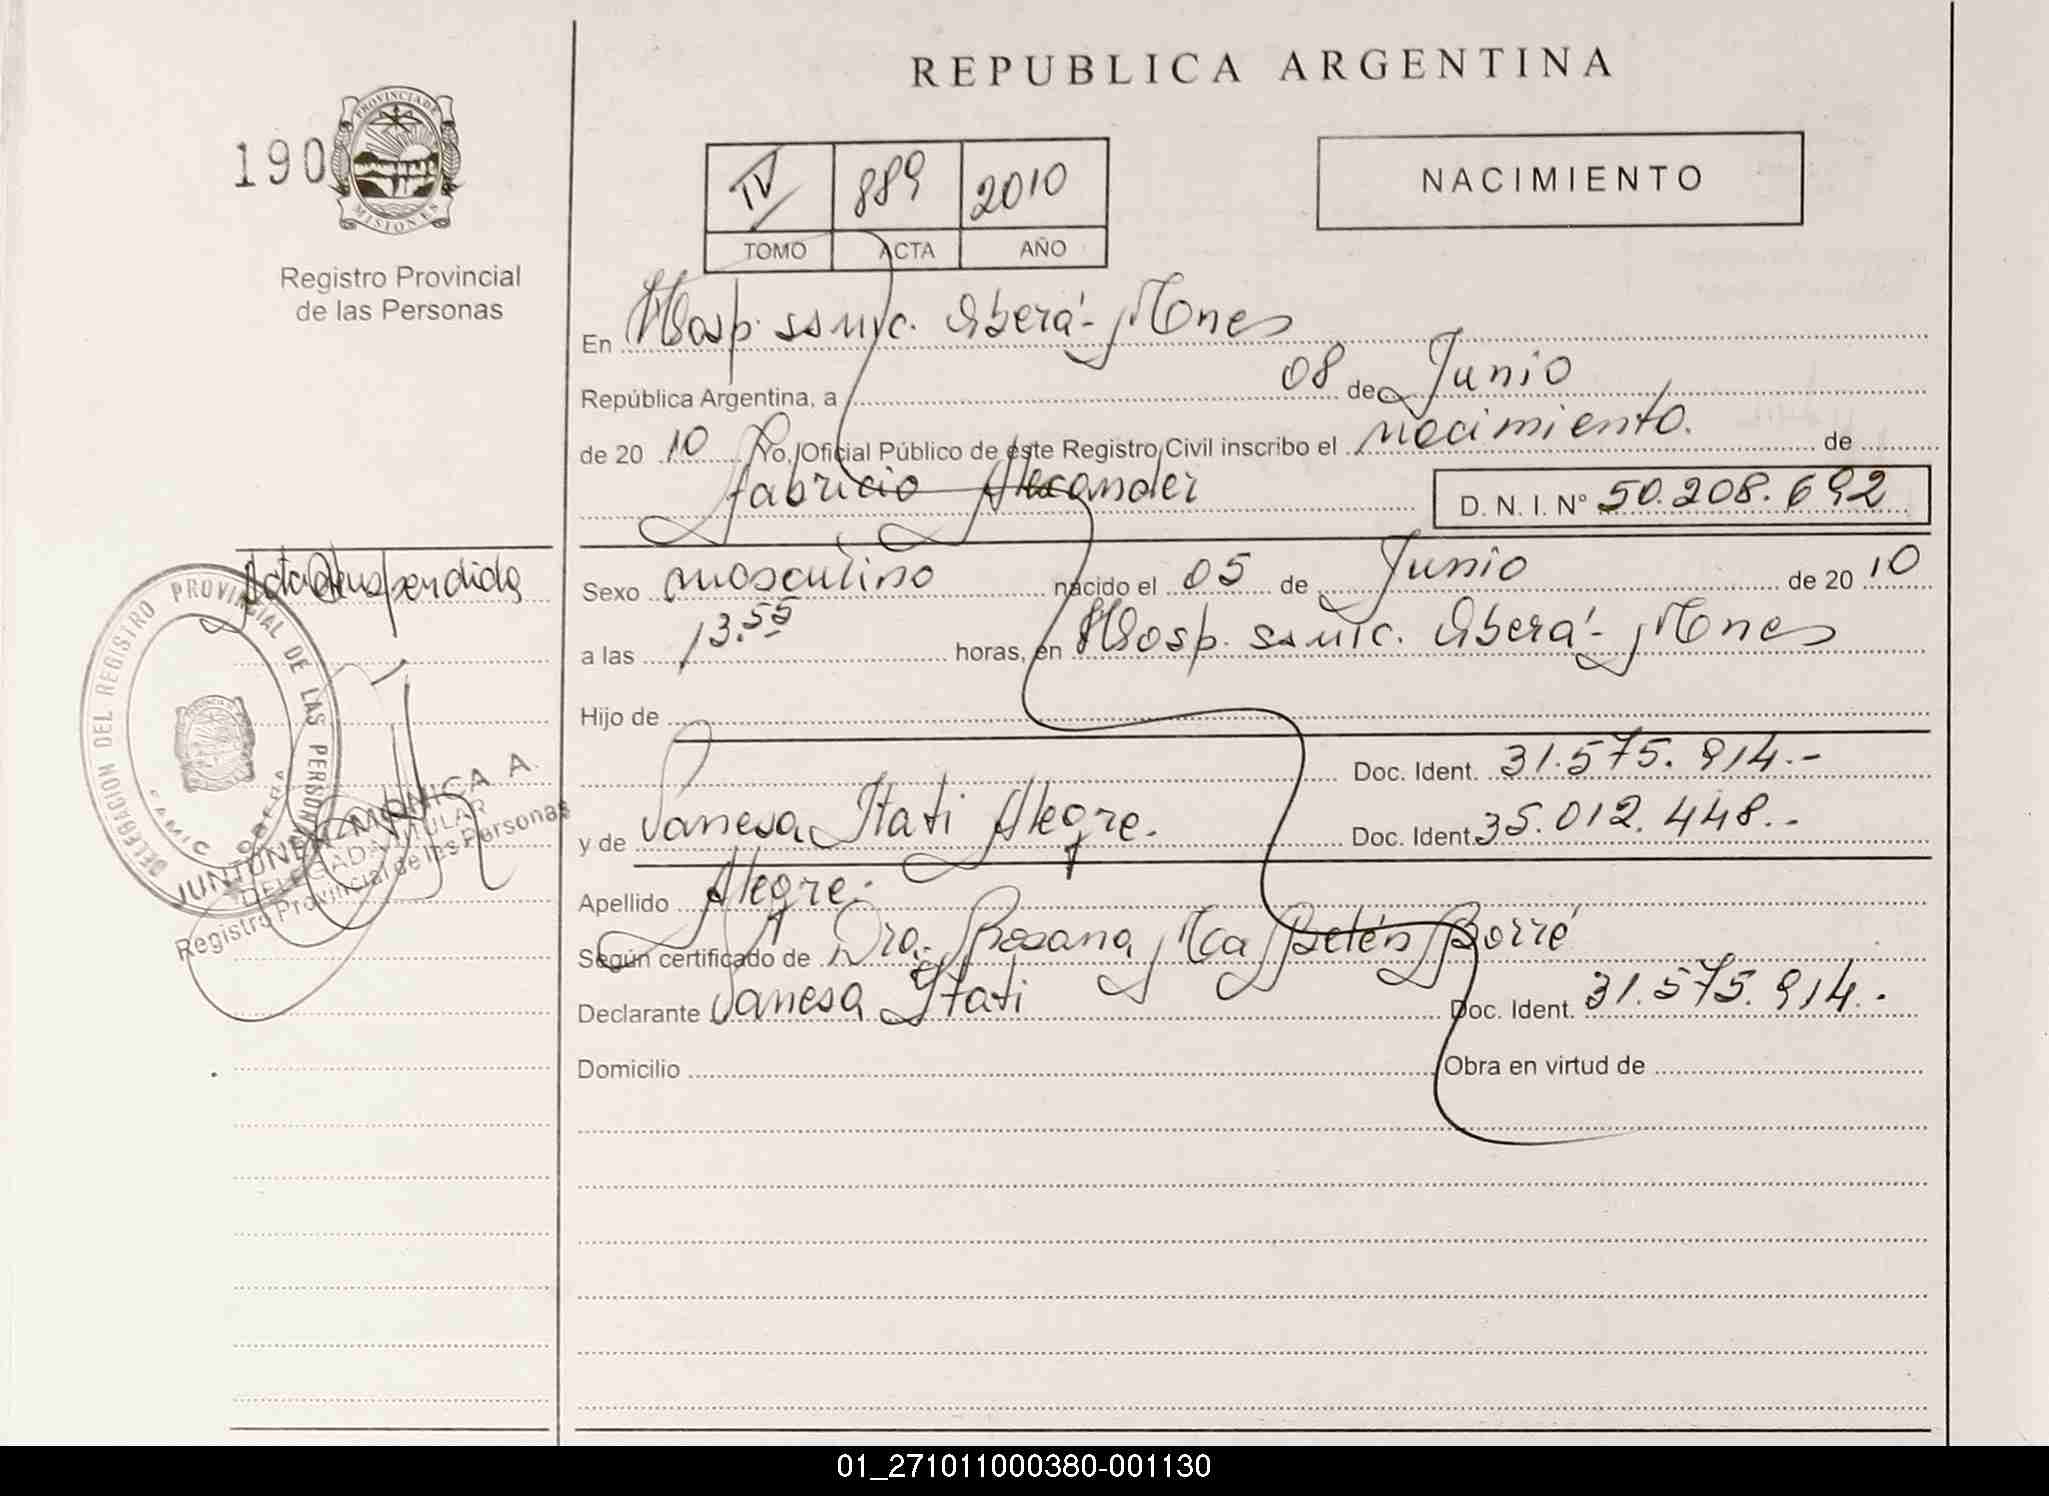 REPUBLICA ARGENTINA
190
PROVINCIA DE
MISIONES
Registro Provincial
de las Personas
IV 889 2010
TOMO ACTA AÑO
NACIMIENTO
En Hosp. SSMIC. Oberá - Mnes
República Argentina, a 08 de Junio
de 20 10 Yo, Oficial Público de este Registro Civil inscribo el nacimiento. de
Fabricio Alexander D. N. I. N° 50.208.692
Sexo masculino nacido el 05 de Junio de 20 10
a las 13.55 horas, en Hosp. SSMIC. Oberá - Mnes
Hijo de
Doc. Ident. 31.575.914.-
y de Vanesa Itati Alegre. Doc. Ident. 35.012.448.-
Apellido Alegre.
Según certificado de Dra. Rosana Ma Belén Borré
Declarante Vanesa Itati Doc. Ident. 31.575.914.-
Domicilio Obra en virtud de
Acta suspendida
DELEGACION DEL REGISTRO PROVINCIAL DE LAS PERSONAS
SAMIC OBERA
MONICA A.
DELEGADA TITULAR
Registro Provincial de las Personas
01_271011000380-001130